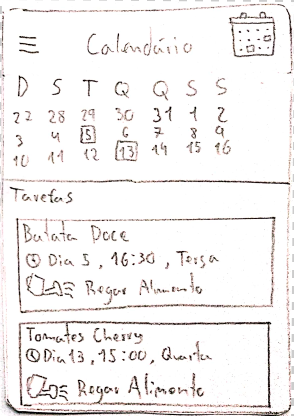 Calendário
D S T Q Q S S
27 28 29 30 31 1 2
3 4 5 6 7 8 9
10 11 12 13 14 15 16
Tarefas
Batata Doce
Dia 5, 16:30, Terça
Regar Alimento
Tomates Cherry
Dia 13, 15:00, Quarta
Regar Alimento